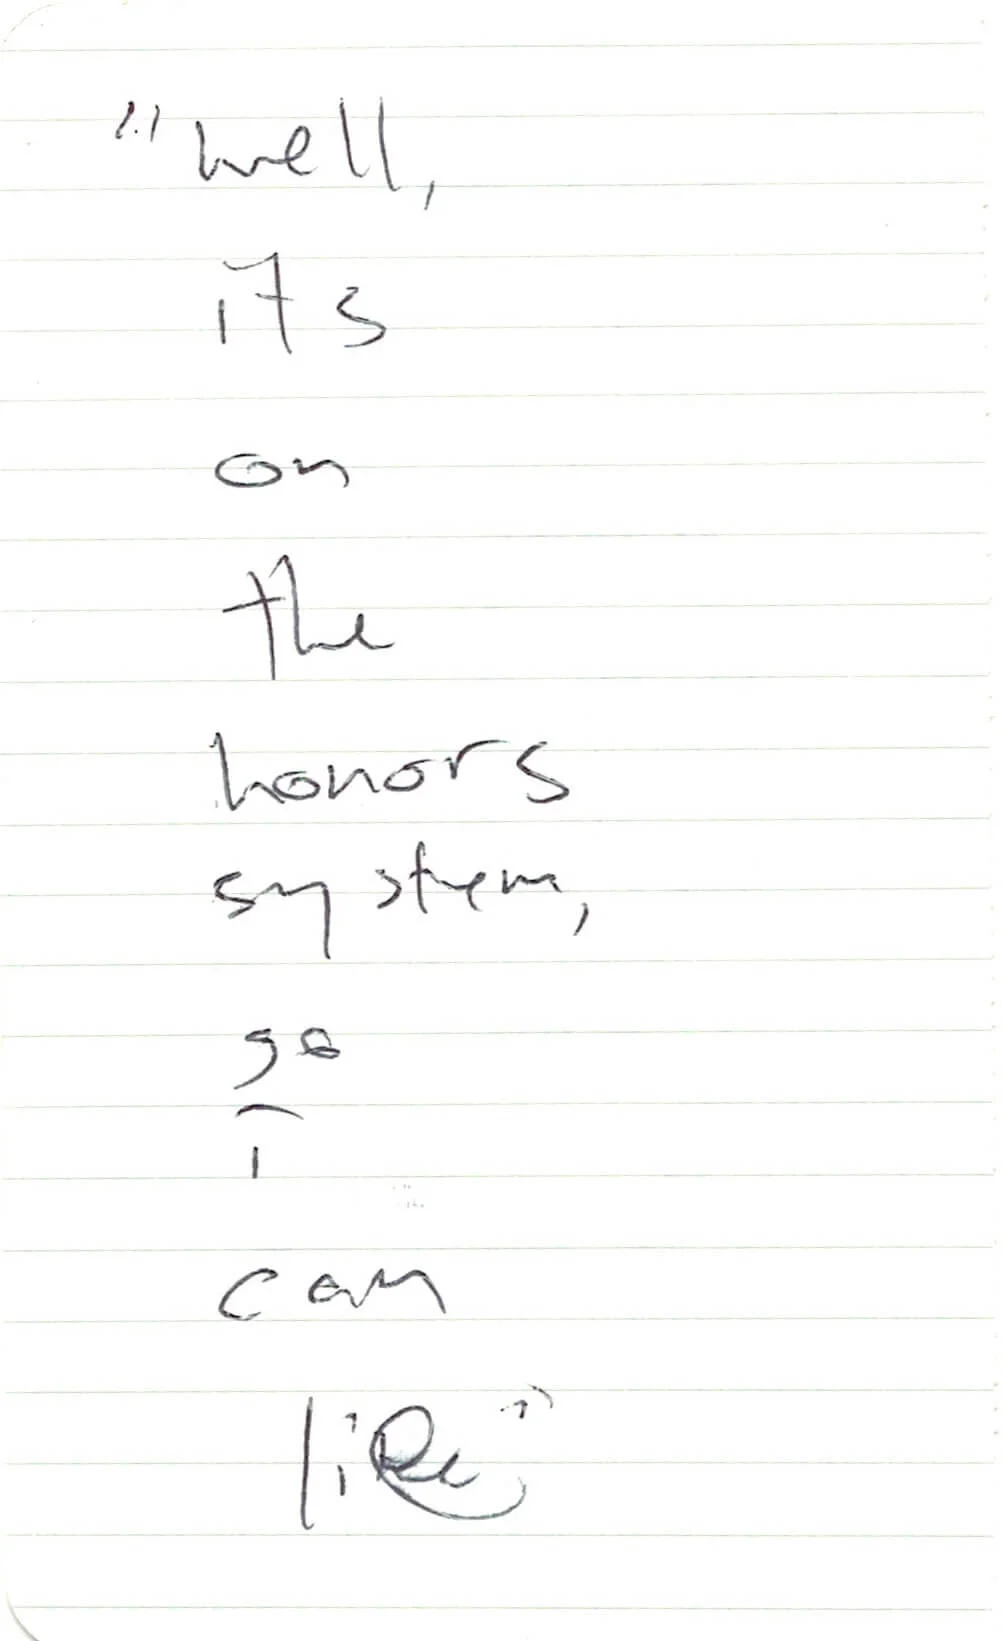 "well,
its
on
the
honors
system,
so
i
can
like"